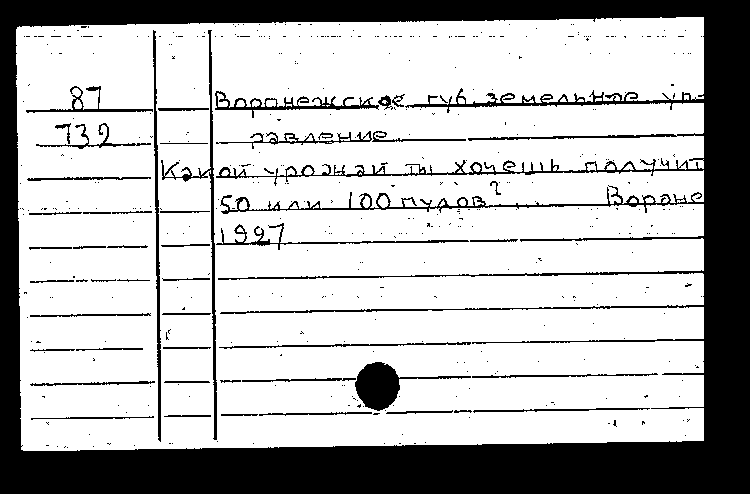 87 Воронежское губ. земельное уп-
732 равление
Какой урожай ты хочешь получит
50 или 100 пудов? ... Вороне
1927